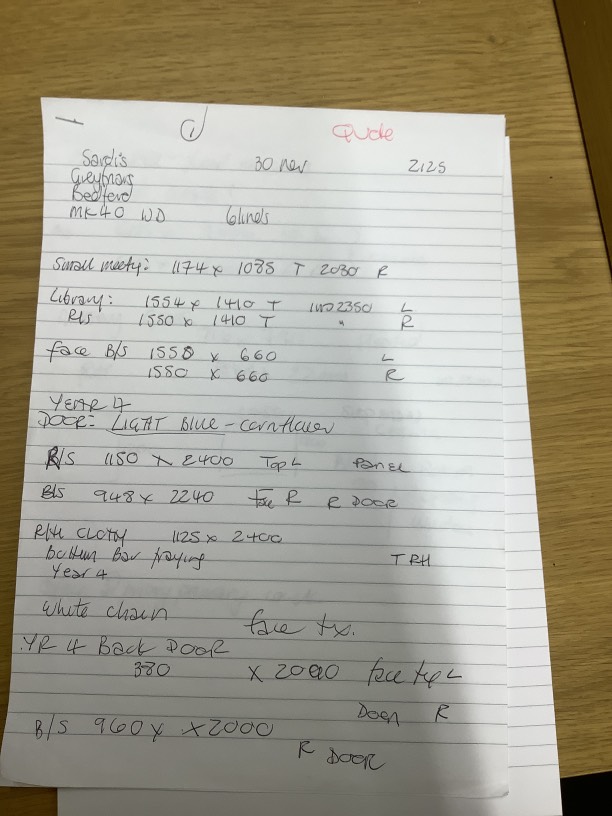 ① Quote
Sardis 30 Nov 2125
Greyfriars
Bedford
MK40 WD blinds
Small meety: 1174 x 1085 T 2030 R
Library: 1554 x 1410 T 2350 L
Rls 1550 x 1410 T " R
face B/S 1550 x 660 L
1550 x 660 R
YEAR 4
DOOR: LIGHT BLUE - cornflower
B/S 1150 x 2400 Top L Panel
B/S 948 x 2240 face R R DOOR
Rlr CLOTH 1125 x 2400
bottom Bar fraying TRH
Year 4
White chain face fx.
YR 4 Back DOOR
380 x 2000 face top L
Door R
B/S 960 x x2000
R DOOR